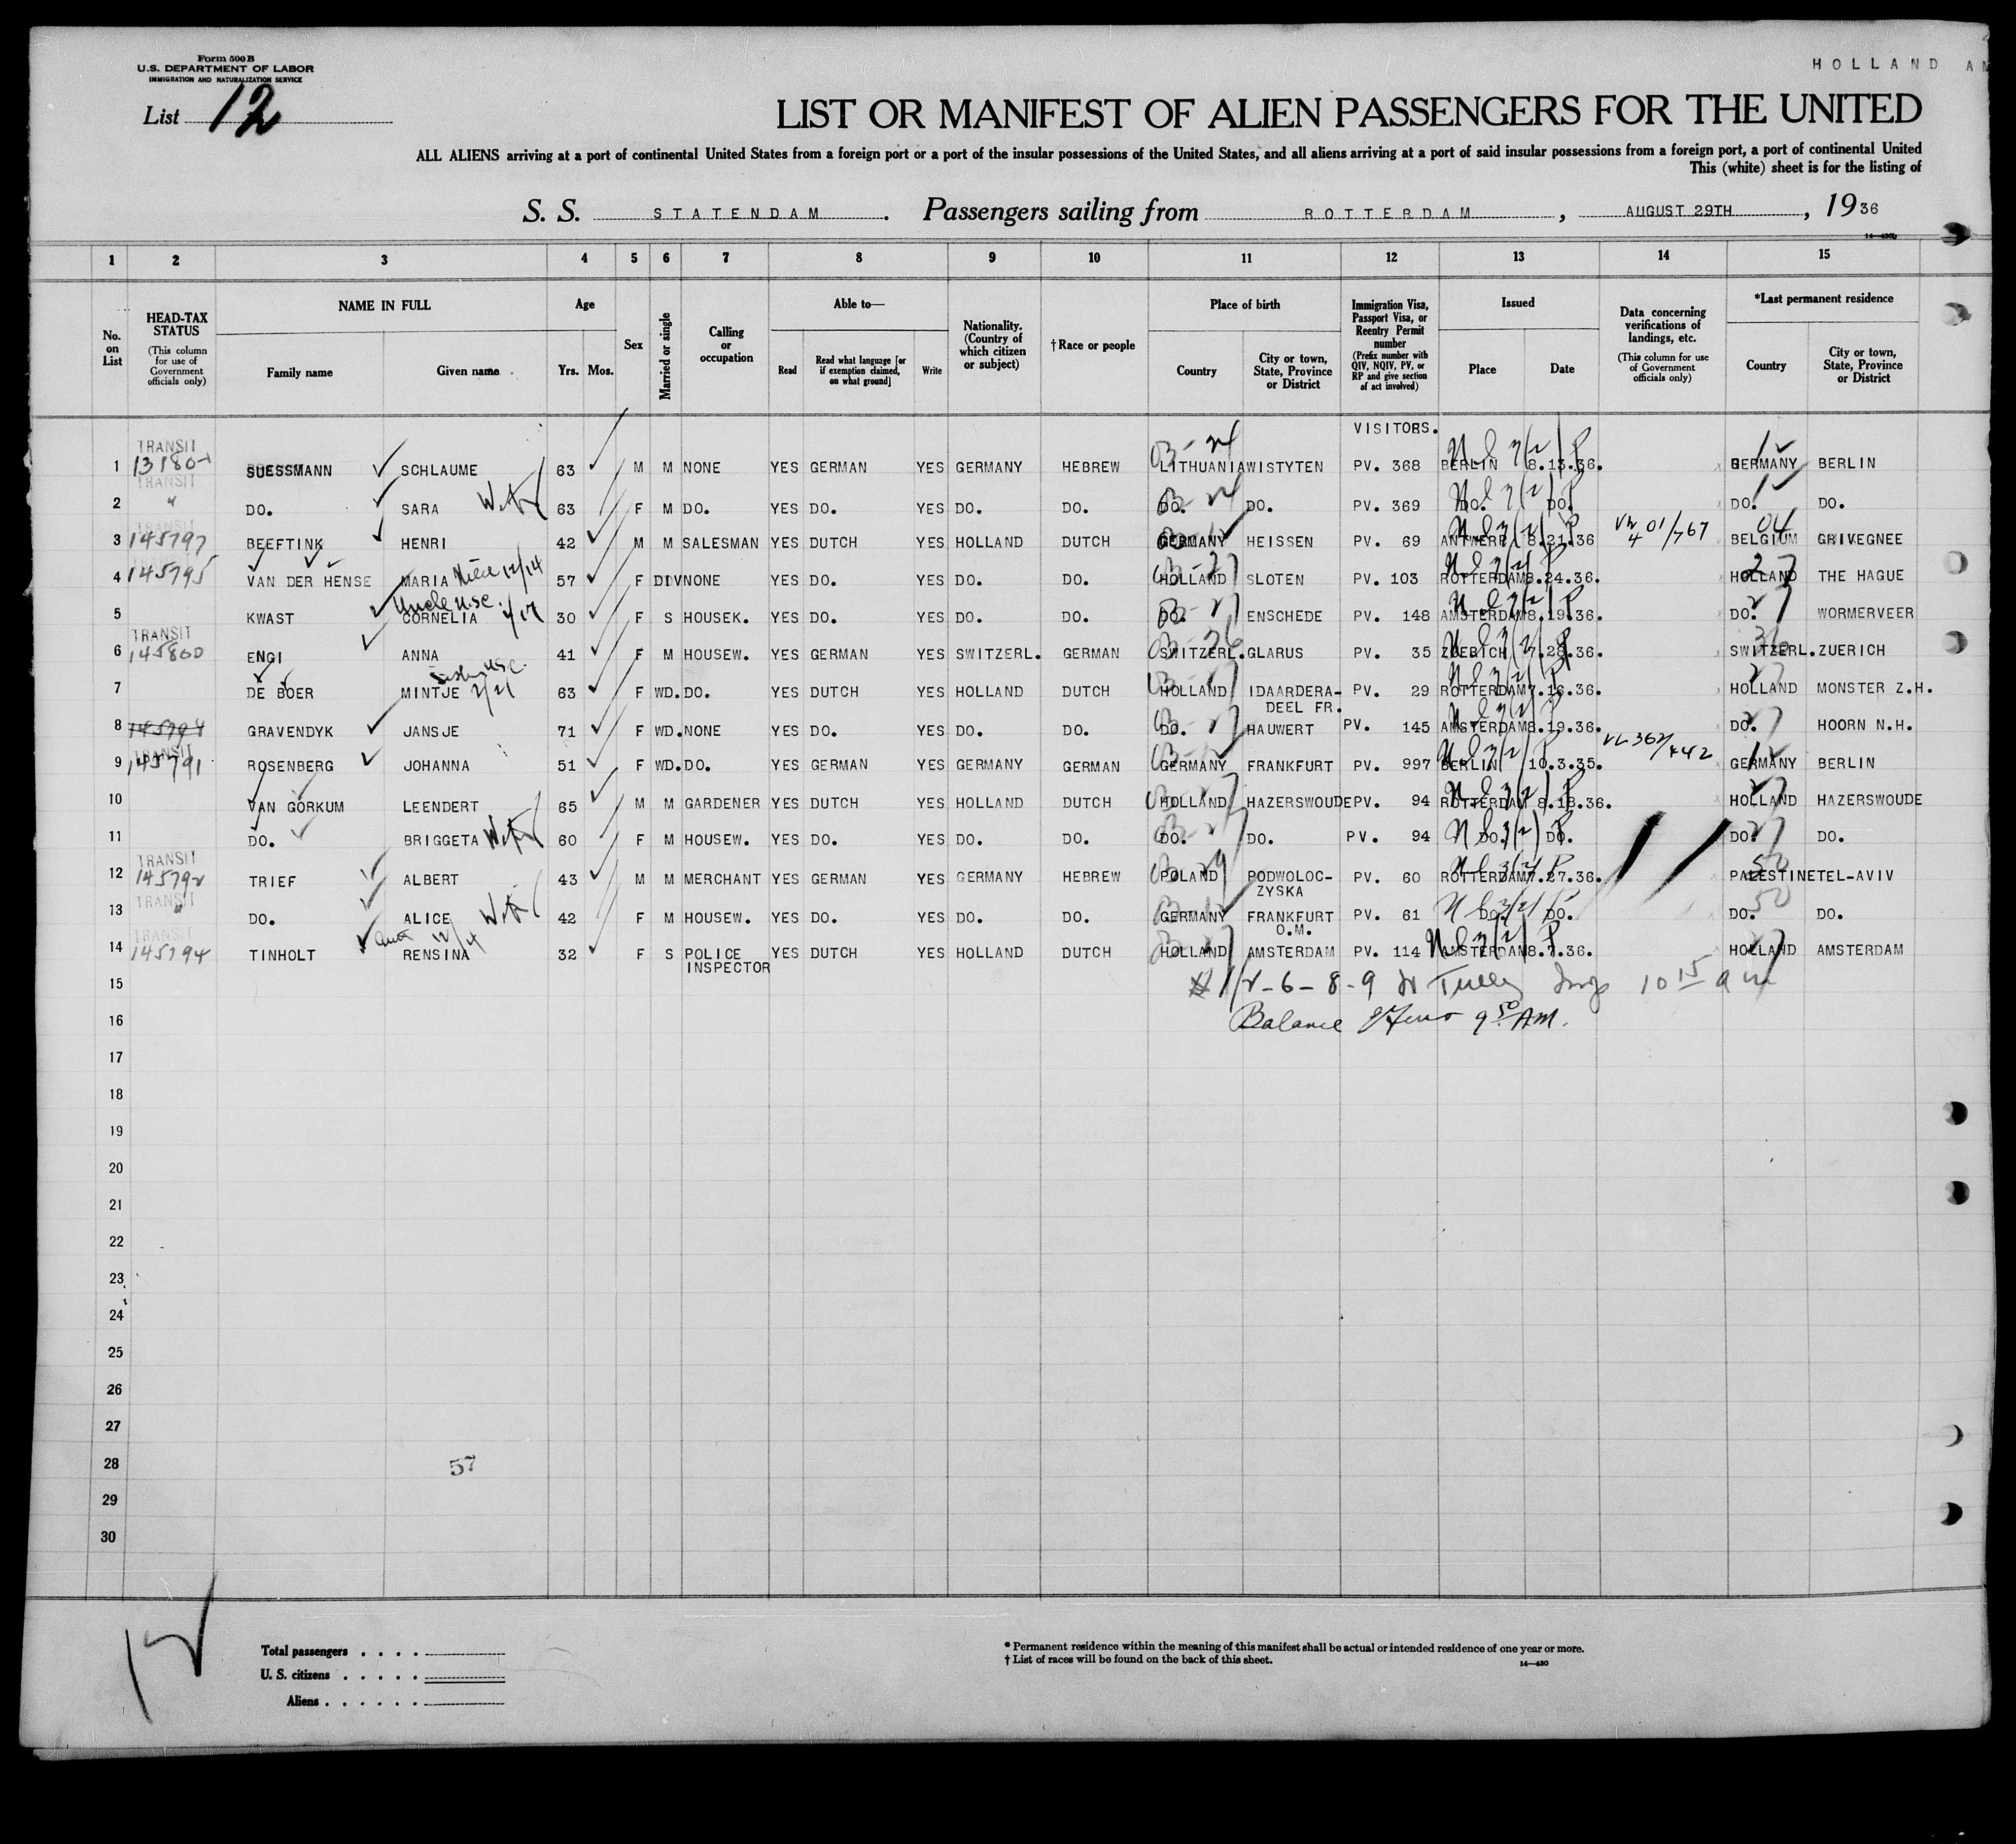 Form 500 B
U.S. DEPARTMENT OF LABOR
IMMIGRATION AND NATURALIZATION SERVICE
HOLLAND AM
List 12
LIST OR MANIFEST OF ALIEN PASSENGERS FOR THE UNITED
ALL ALIENS arriving at a port of continental United States from a foreign port or a port of the insular possessions of the United States, and all aliens arriving at a port of said insular possessions from a foreign port, a port of continental United
This (white) sheet is for the listing of
S. S. STATENDAM. Passengers sailing from ROTTERDAM, AUGUST 29TH, 1936
1 2 3 4 5 6 7 8 9 10 11 12 13 14 15
No. on List
HEAD-TAX STATUS (This column for use of Government officials only)
NAME IN FULL
Family name Given name
Age
Yrs. Mos.
Sex
Married or single
Calling or occupation
Able to—
Read Read what language [or if exemption claimed, on what ground] Write
Nationality. (Country of which citizen or subject)
†Race or people
Place of birth
Country City or town, State, Province or District
Immigration Visa, Passport Visa, or Reentry Permit number (Prefix number with QIV, NQIV, PV, or RP and give section of act involved)
Issued
Place Date
Data concerning verifications of landings, etc. (This column for use of Government officials only)
*Last permanent residence
Country City or town, State, Province or District
VISITORS.
1 TRANSIT SUESSMANN SCHLAUME 63 M M NONE YES GERMAN YES GERMANY HEBREW LITHUANIA WISTYTEN PV. 368 BERLIN 8.13.36. GERMANY BERLIN
2 TRANSIT DO. SARA 63 F M DO. YES DO. YES DO. DO. DO. DO. PV. 369 DO. DO. DO. DO.
3 145797 BEEFTINK HENRI 42 M M SALESMAN YES DUTCH YES HOLLAND DUTCH GERMANY HEISSEN PV. 69 ANTWERP 8.21.36 BELGIUM GRIVEGNEE
4 145795 VAN DER HENSE MARIA 57 F DIV NONE YES DO. YES DO. DO. HOLLAND SLOTEN PV. 103 ROTTERDAM 8.24.36. HOLLAND THE HAGUE
Uncle USC
5 KWAST CORNELIA 30 F S HOUSEK. YES DO. YES DO. DO. DO. ENSCHEDE PV. 148 AMSTERDAM 8.19.36. DO. WORMERVEER
6 TRANSIT 145800 ENGI ANNA 41 F M HOUSEW. YES GERMAN YES SWITZERL. GERMAN SWITZERL. GLARUS PV. 35 ZUERICH 7.28.36. SWITZERL. ZUERICH
7 DE BOER MINTJE 63 F WD. DO. YES DUTCH YES HOLLAND DUTCH HOLLAND IDAARDERA-DEEL FR. PV. 29 ROTTERDAM 7.16.36. HOLLAND MONSTER Z.H.
8 GRAVENDYK JANSJE 71 F WD. NONE YES DO. YES DO. DO. DO. HAUWERT PV. 145 AMSTERDAM 8.19.36. DO. HOORN N.H.
9 TRANSIT 145791 ROSENBERG JOHANNA 51 F WD. DO. YES GERMAN YES GERMANY GERMAN GERMANY FRANKFURT PV. 997 BERLIN 10.3.35. GERMANY BERLIN
10 VAN GORKUM LEENDERT 65 M M GARDENER YES DUTCH YES HOLLAND DUTCH HOLLAND HAZERSWOUDE PV. 94 ROTTERDAM 8.18.36. HOLLAND HAZERSWOUDE
11 DO. BRIGGETA 60 F M HOUSEW. YES DO. YES DO. DO. DO. DO. PV. 94 DO. DO. DO. DO.
12 TRANSIT 145792 TRIEF ALBERT 43 M M MERCHANT YES GERMAN YES GERMANY HEBREW POLAND PODWOLOC-ZYSKA PV. 60 ROTTERDAM 7.27.36. PALESTINE TEL-AVIV
13 TRANSIT DO. ALICE 42 F M HOUSEW. YES DO. YES DO. DO. GERMANY FRANKFURT O.M. PV. 61 DO. DO. DO. DO.
14 145794 TINHOLT RENSINA 32 F S POLICE INSPECTOR YES DUTCH YES HOLLAND DUTCH HOLLAND AMSTERDAM PV. 114 AMSTERDAM 8.7.36. HOLLAND AMSTERDAM
15
16 Balance 9 50 AM.
17
18
19
20
21
22
23
24
25
26
27
28 57
29
30
12
Total passengers
U. S. citizens
Aliens
* Permanent residence within the meaning of this manifest shall be actual or intended residence of one year or more.
† List of races will be found on the back of this sheet.
14—430